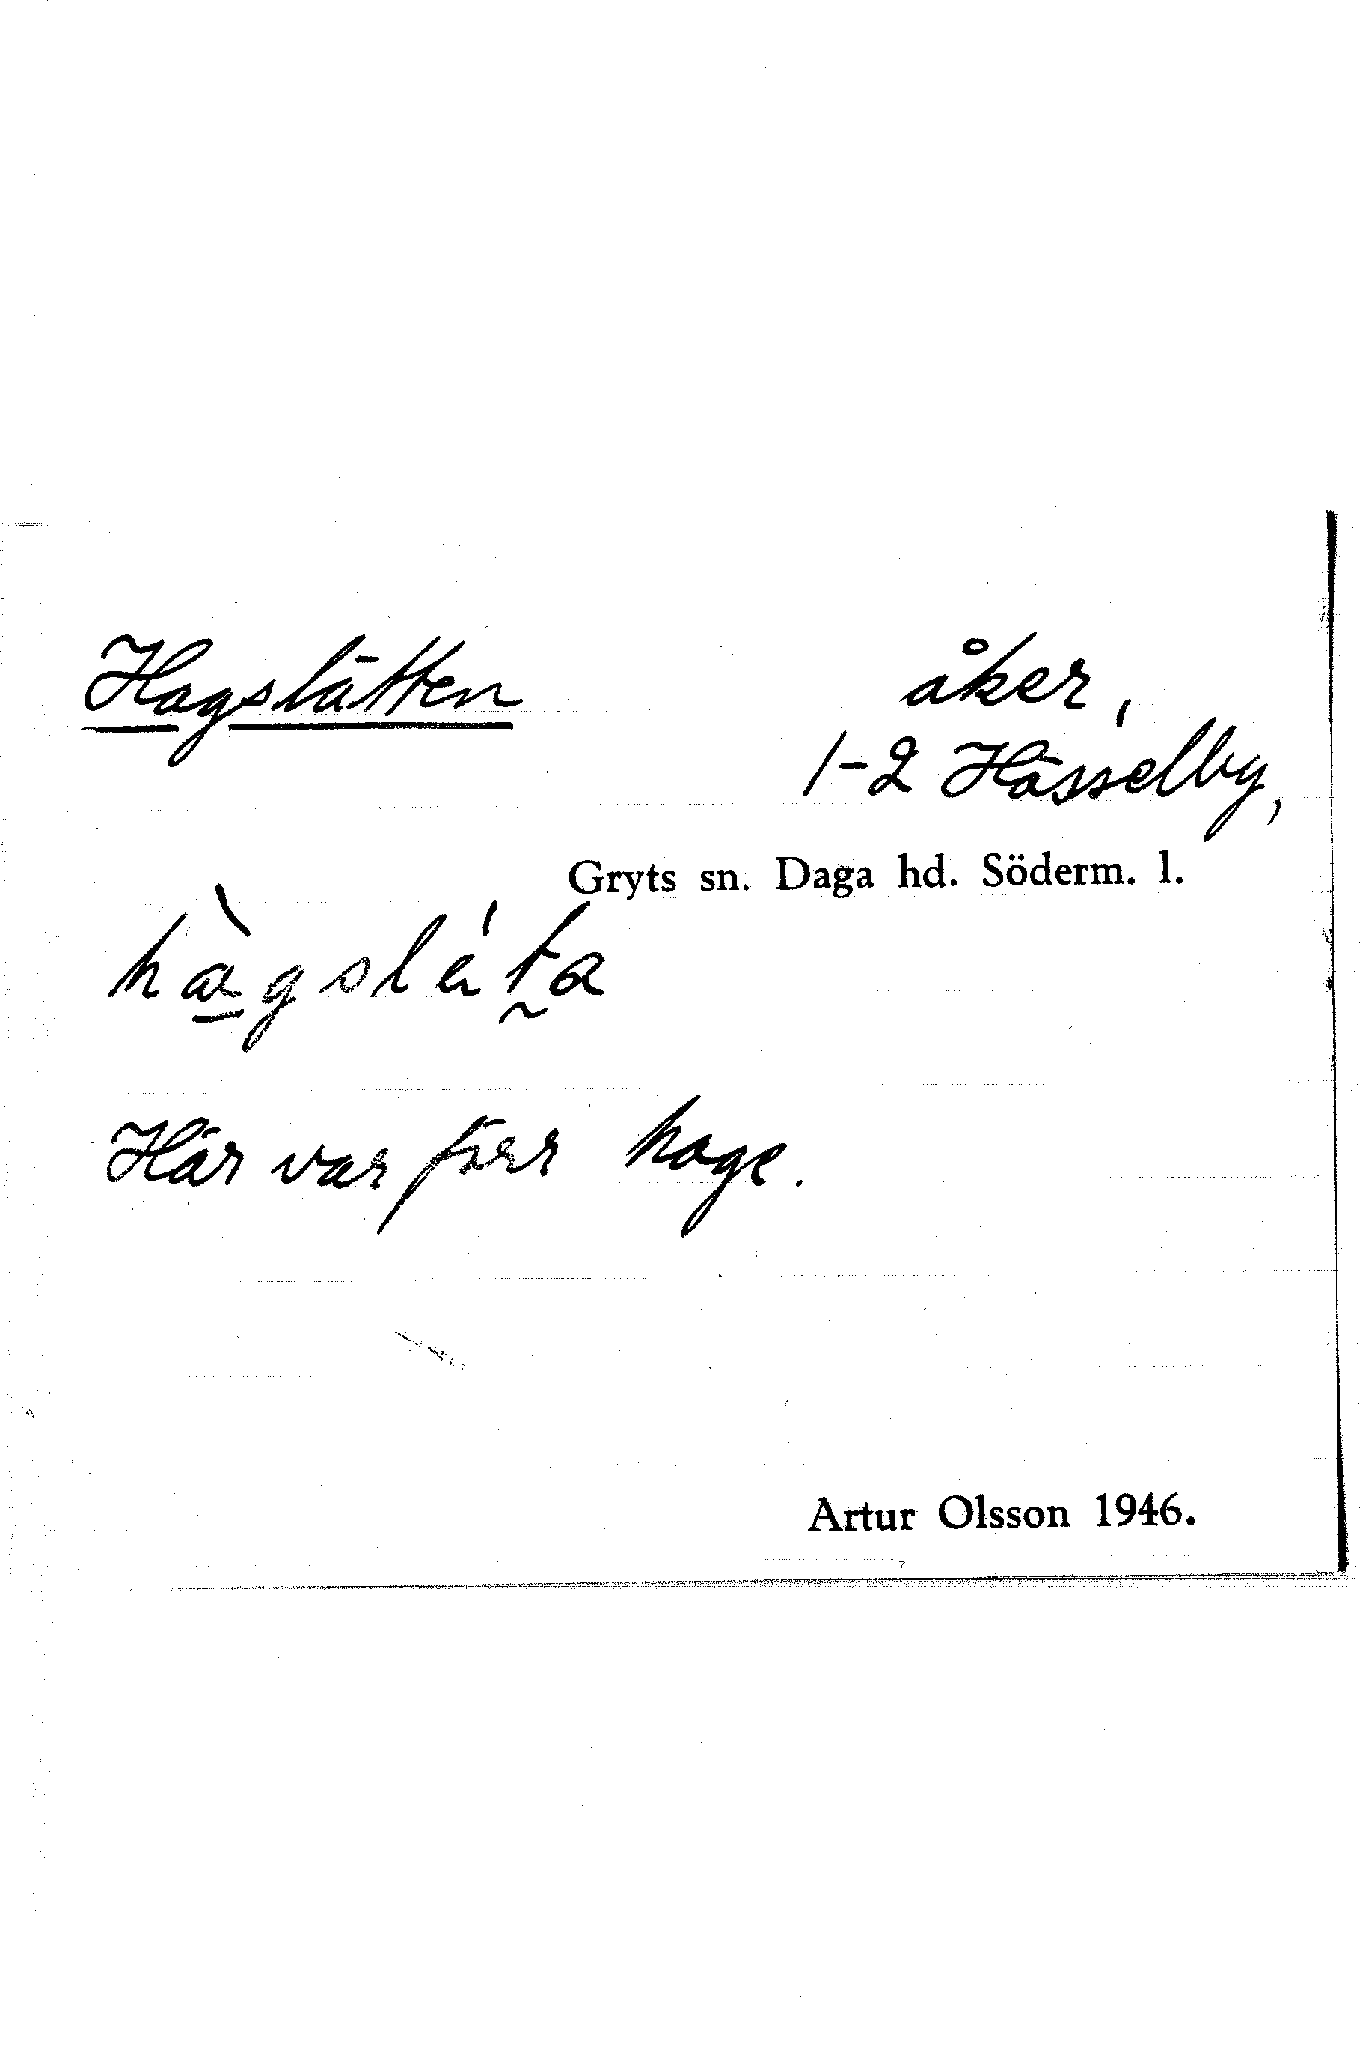 Hagslätten
åker,
1-2 Hässelby,
Gryts sn. Daga hd. Söderm. l.
Här var förr hage.
Artur Olsson 1946.